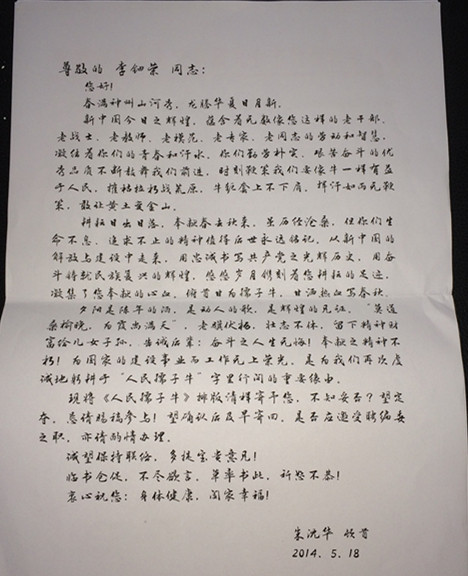 尊敬的 李钿荣 同志：
您好！
春满神州山河秀，龙腾华夏日月新。
新中国今日之辉煌，蕴含着无数像您这样的老干部、
老战士、老教师、老模范、老专家、老同志的劳动和智慧，
凝结着你们的青春和汗水，你们勤劳朴实、艰苦奋斗的优
秀品质不断鼓舞我们前进，时刻鞭策我们要像牛一样有益
于人民，摧枯拉朽战荒原，牛缠套上不下肩，挥汗如雨无鞭
策，敢让黄土变金山。
耕耘日出日落，奉献春去秋来，虽历经沧桑，但你们生
命不息，追求不止的精神值得后世永远铭记，从新中国的
解放与建设中走来，用忠诚书写共产党之光辉历史，用奋
斗铸就民族复兴的辉煌，悠悠岁月镌刻着您耕耘的足迹，
凝集了您奉献的心血，俯首甘为孺子牛，甘洒热血写春秋。
夕阳是陈年的酒，是动人的歌，是辉煌的见证，“莫道
桑榆晚，为霞尚满天”，老骥伏枥，壮志不休，留下精神财
富给儿女子孙，告诫后辈：奋斗之人生无悔！奉献之精神不
朽！为国家的建设事业而工作无上荣光，是为我们再次虔
诚地躬耕于“人民孺子牛”字里行间的重要缘由。
现将《人民孺子牛》排版清样寄予您，不知妥否？望定
夺，恳请赐稿参与！望确认后及早寄回，是否应邀受聘编委
之职，亦请酌情办理。
诚望保持联络，多提宝贵意见！
临书仓促，不尽欲言，草率书此，祈恕不恭！
衷心祝您：身体健康，阖家幸福！
朱沈华 顿首
2014．5．18